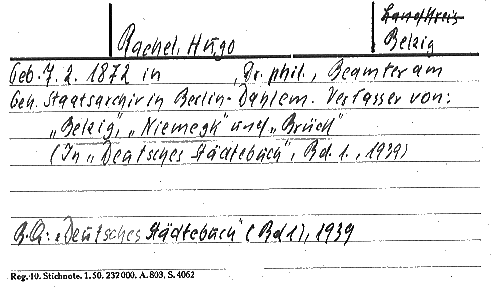 Landkreis
Rachel, Hugo Belzig
Geb. 7. 2. 1872 in , Dr. phil., Beamter am
Geh. Staatsarchiv in Berlin-Dahlem. Verfasser von:
„Belzig", „Niemegk" und „Brück"
(In „Deutsches Städtebuch", Bd. 1., 1939)
B.Q: „Deutsches Städtebuch" (Bd 1), 1939
Reg. 10. Stichnote. 1. 50. 232000. A. 803. S. 4062